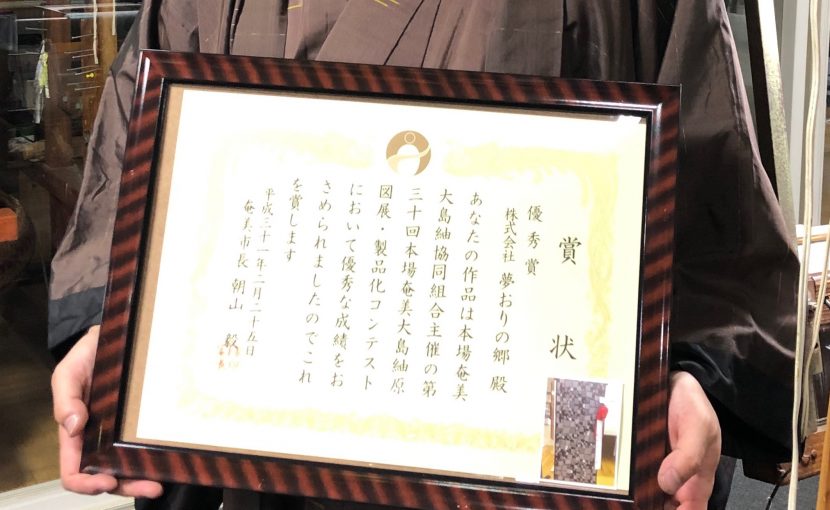 賞状
優秀賞
株式会社 夢おりの郷 殿
あなたの作品は本場奄美
大島紬協同組合主催の第
三十回本場奄美大島紬原
図展・製品化コンテスト
において優秀な成績をお
さめられましたのでこれ
を賞します
平成三十一年二月二十五日
奄美市長 朝山 毅